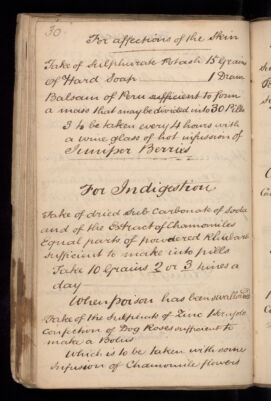 30
For affections of the Skin
Take of Sulphurate Potash 15 Grains
of Hard Soap 1 Dram
Balsam of Peru sufficient to form
a mass that may be divided into 30 Pills
3 to be taken every 4 hours with
a wine glass of hot infusion of
Juniper Berries
For Indigestion
Take of dried Sub Carbonate of Soda
and of the Extract of Chamomiles
equal parts of powdered Rhubarb
sufficient to make into pills
Take 10 Grains 2 or 3 times a
day
When poison has been swallowed
Take of the Sulphate of Zinc
Confection of Dog Roses sufficient to
make a Bolus
Which is to be taken with some
infusion of Chamomile flowers